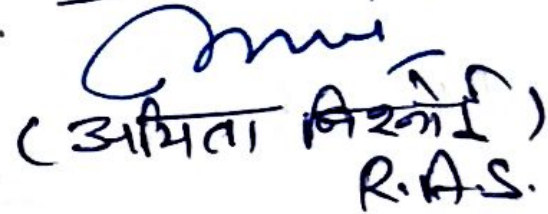 (अमिता बिश्नोई)
R.A.S.